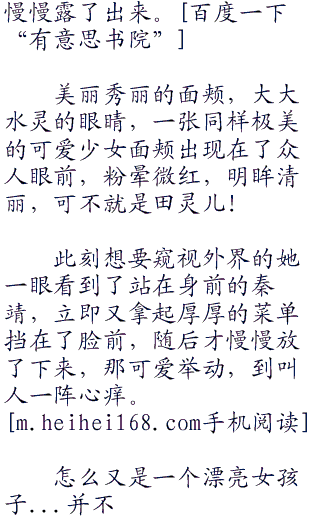 慢慢露了出来。[百度一下
“有意思书院”]
美丽秀丽的面颊，大大
水灵的眼睛，一张同样极美
的可爱少女面颊出现在了众
人眼前，粉晕微红，明眸清
丽，可不就是田灵儿！
此刻想要窥视外界的她
一眼看到了站在身前的秦
靖，立即又拿起厚厚的菜单
挡在了脸前，随后才慢慢放
了下来，那可爱举动，到叫
人一阵心痒。
[m.heihei168.com手机阅读]
怎么又是一个漂亮女孩
子...并不